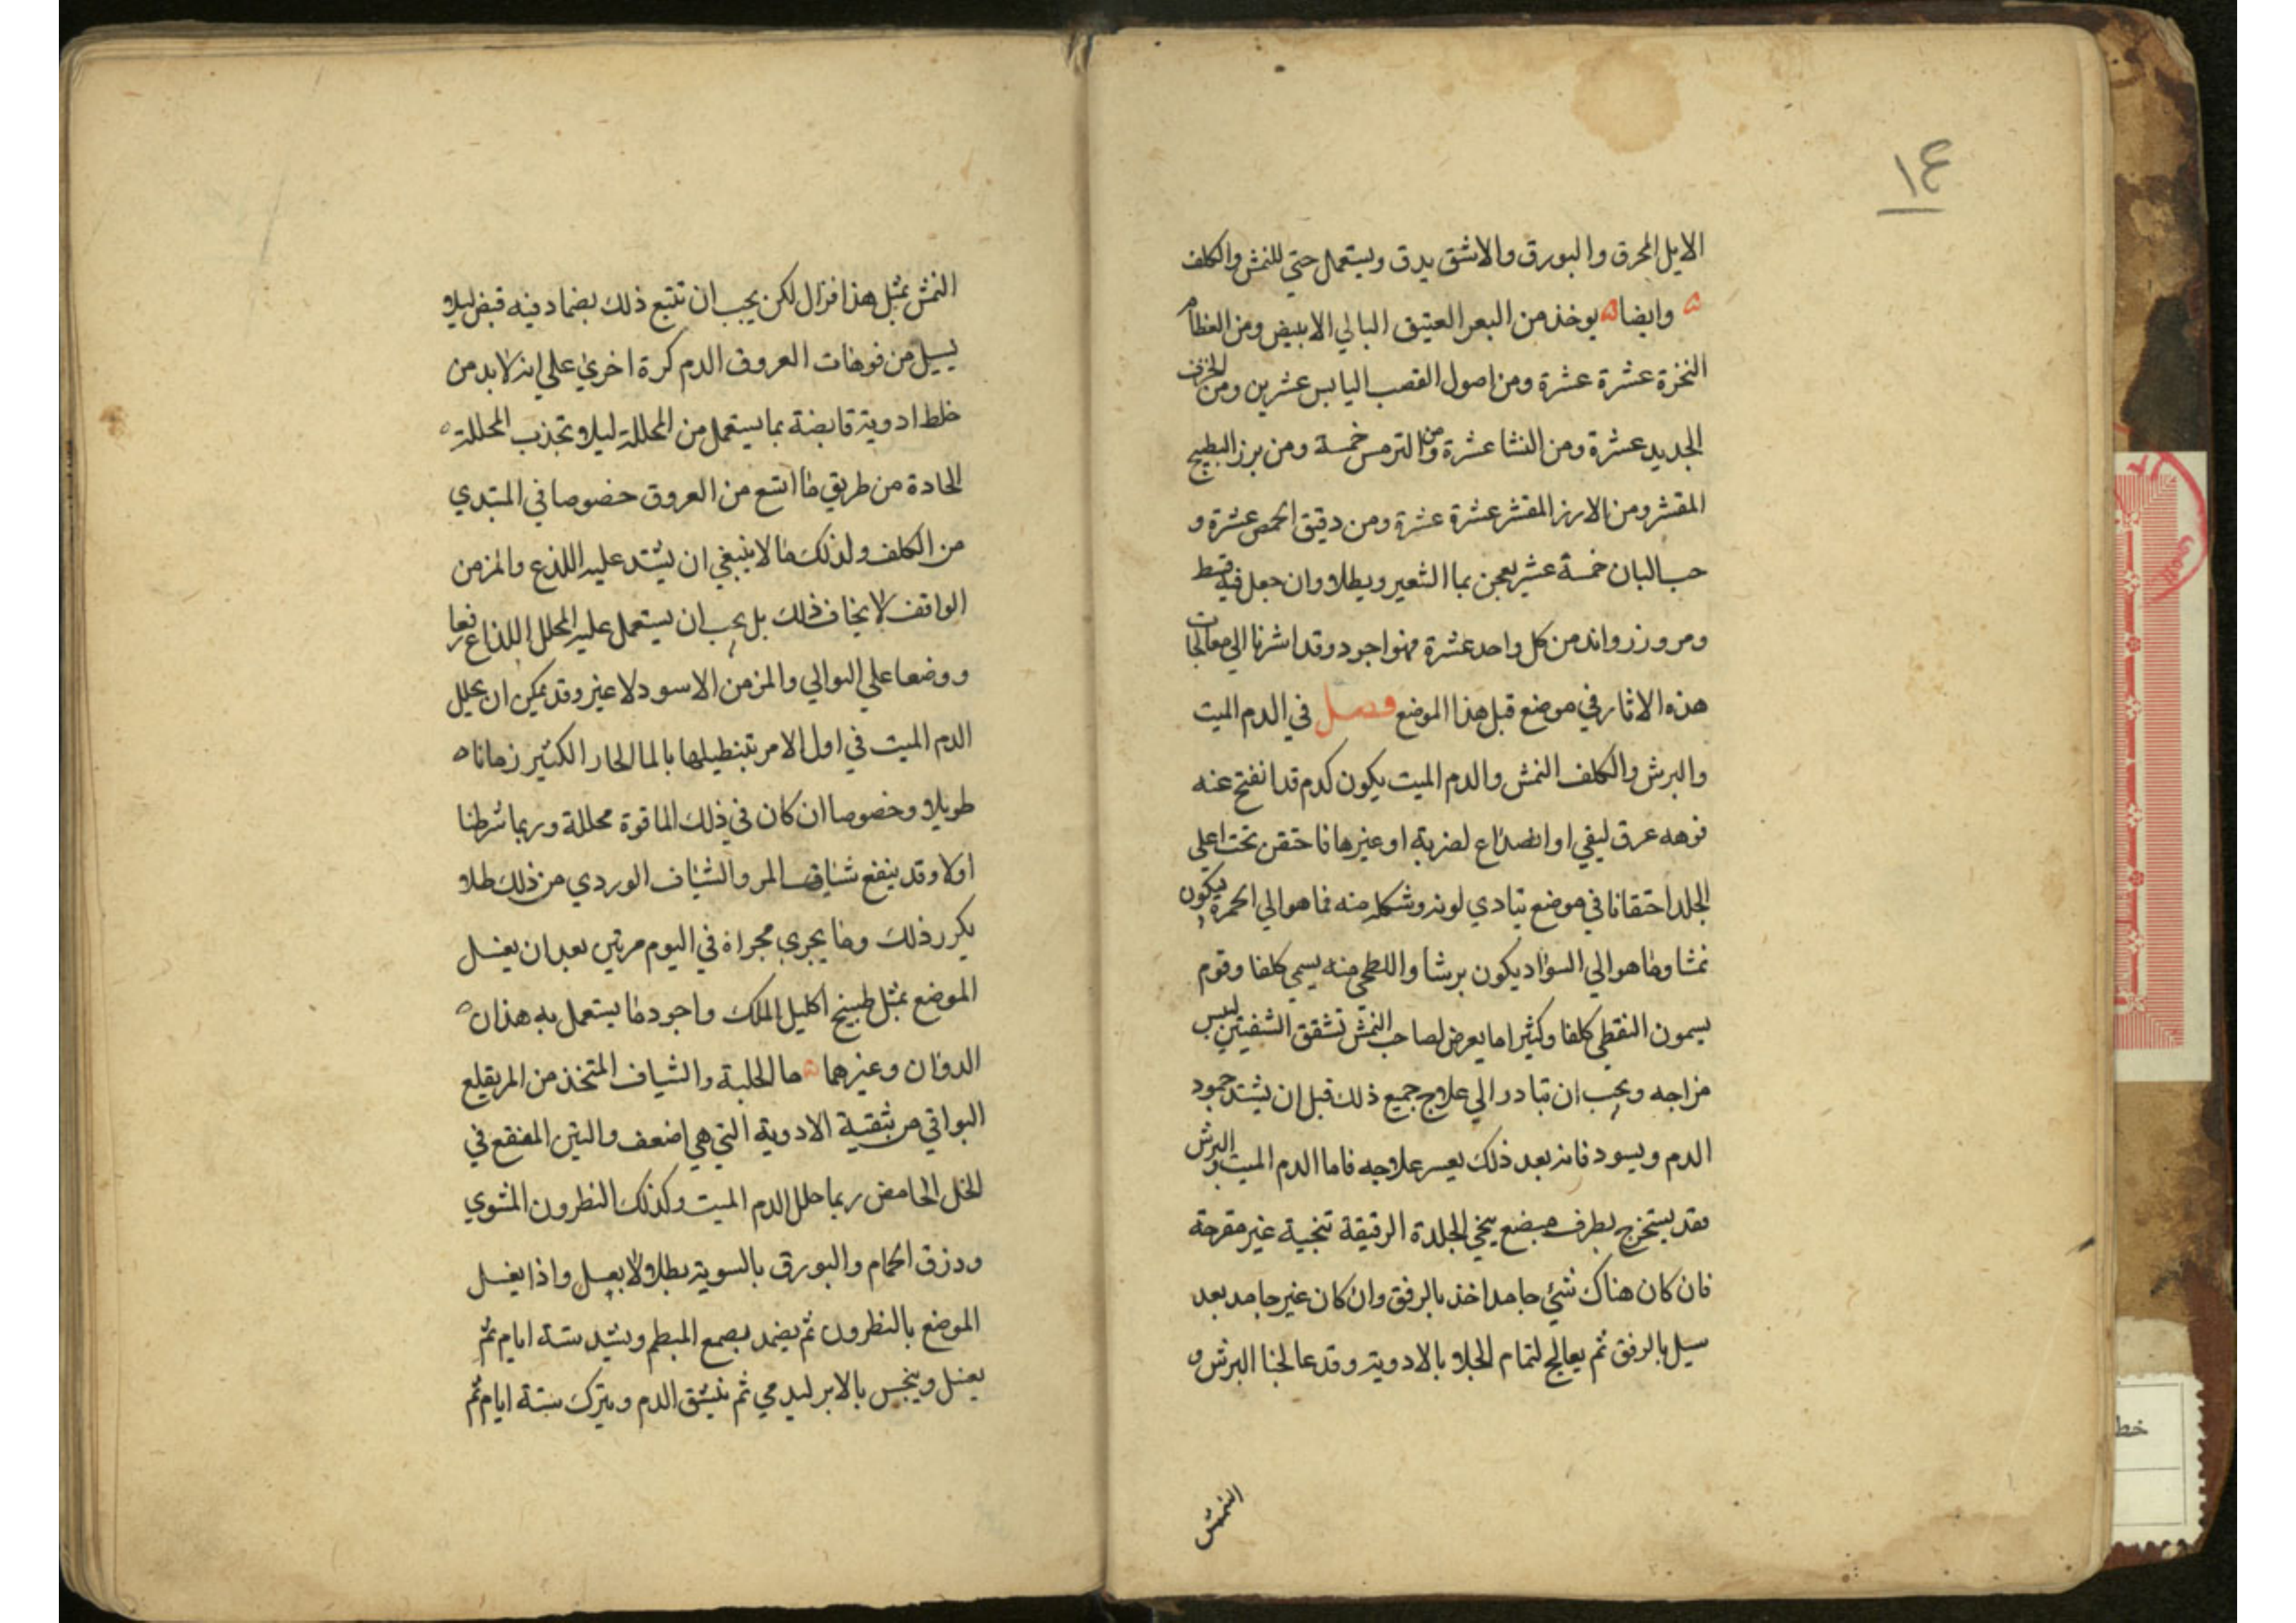 ١٤
الايل المحرق والبورق والاشق يدق ويستعمل حتي للنمش والكلف
وايضا يوخذ من البعر العتيق البالي الابيض ومن العظام
النخرة عشرة عشرة ومن اصول القصب اليابس عشرين ومن الخزف
الجديد عشرة ومن النشا عشرة ومن الترمس خمسة ومن بزر البطيخ
المقشر ومن الارز المقشر عشرة عشرة ومن دقيق الحمص عشرة و
حب البان خمسة عشر يعجن بما الشعير ويطلا وان جعل فيه قسط
ومر وزرواند من كل واحد عشرة فهو اجود وقد اشرنا الي معالجات
هذه الاثار في موضع قبل هذا الموضع فصل في الدم الميت
والبرش والكلف النمش والدم الميت يكون كدم قد انفتح عنه
فوهه عرق ليفي او انصداع لضربة او غيرها فاحتقن تحت اعلي
الجلد احتقانا في موضع يتادي لونه وشكله منه فما هو الي الحمرة يكون
نمشا وما هو الي السواد يكون برشا واللطخي منه يسمي كلفا وقوم
يسمون النقطي كلفا وكثيرا ما يعرض لصاحب النمش تشقق الشفتين ليبس
مزاجه ويجب ان تبادر الي علاج جميع ذلك قبل ان يشتد جمود
الدم ويسود فانه بعد ذلك يعسر علاجه فاما الدم الميت والبرش
فقد يستخرج بطرف مبضع ينحي الجلدة الرقيقة تنحية غير مقرحة
فان كان هناك شي جامد اخذ بالرفق وان كان غير جامد بعد
سيل بالرفق ثم يعالج لتمام الجلا بالادوية وقد عالجنا البرش و
النمش
النمش بمثل هذا فزال لكن يجب ان تتبع ذلك بضماد فيه قبض ليلا
يسيل من فوهات العروق الدم كرة اخري علي انه لا بد من
خلط ادوية قابضة بما يستعمل من المحللة ليلا تجذب المحللة
الحادة من طريق ما اتسع من العروق خصوصا في المبتدي
من الكلف ولذلك ما لا ينبغي ان يشتد عليه اللذع والمزمن
الواقف لا يخاف ذلك بل يجب ان يستعمل عليه المحلل اللذاع رفعا
ووضعا علي التوالي والمزمن الاسود لا غير وقد يمكن ان يحلل
الدم الميت في اول الامر بتنطيلها بالما الحار الكثير زمانا
طويلا وخصوصا ان كان في ذلك الما قوة محللة وربما شرطنا
اولا وقد ينفع شياف المر والشياف الوردي من ذلك طلا
يكرر ذلك وما يجري مجراه في اليوم مرتين بعد ان يغسل
الموضع بمثل طبيخ اكليل الملك واجود ما يستعمل به هذان
الدوان وغيرهما ما الحلبة والشياف المتخذ من المر يقلع
البواقي من بقية الادوية التي هي اضعف والتين المنقع في
الخل الحامض ربما حلل الدم الميت وكذلك النطرون المشوي
وذرق الحمام والبورق بالسوية يطلا لا بعسل واذا يغسل
الموضع بالنطرون ثم يضمد بصمغ البطم ويشد ستة ايام ثم
يغسل وينخس بالابر ليدمي ثم ينشق الدم ويترك ستة ايام ثم
خط